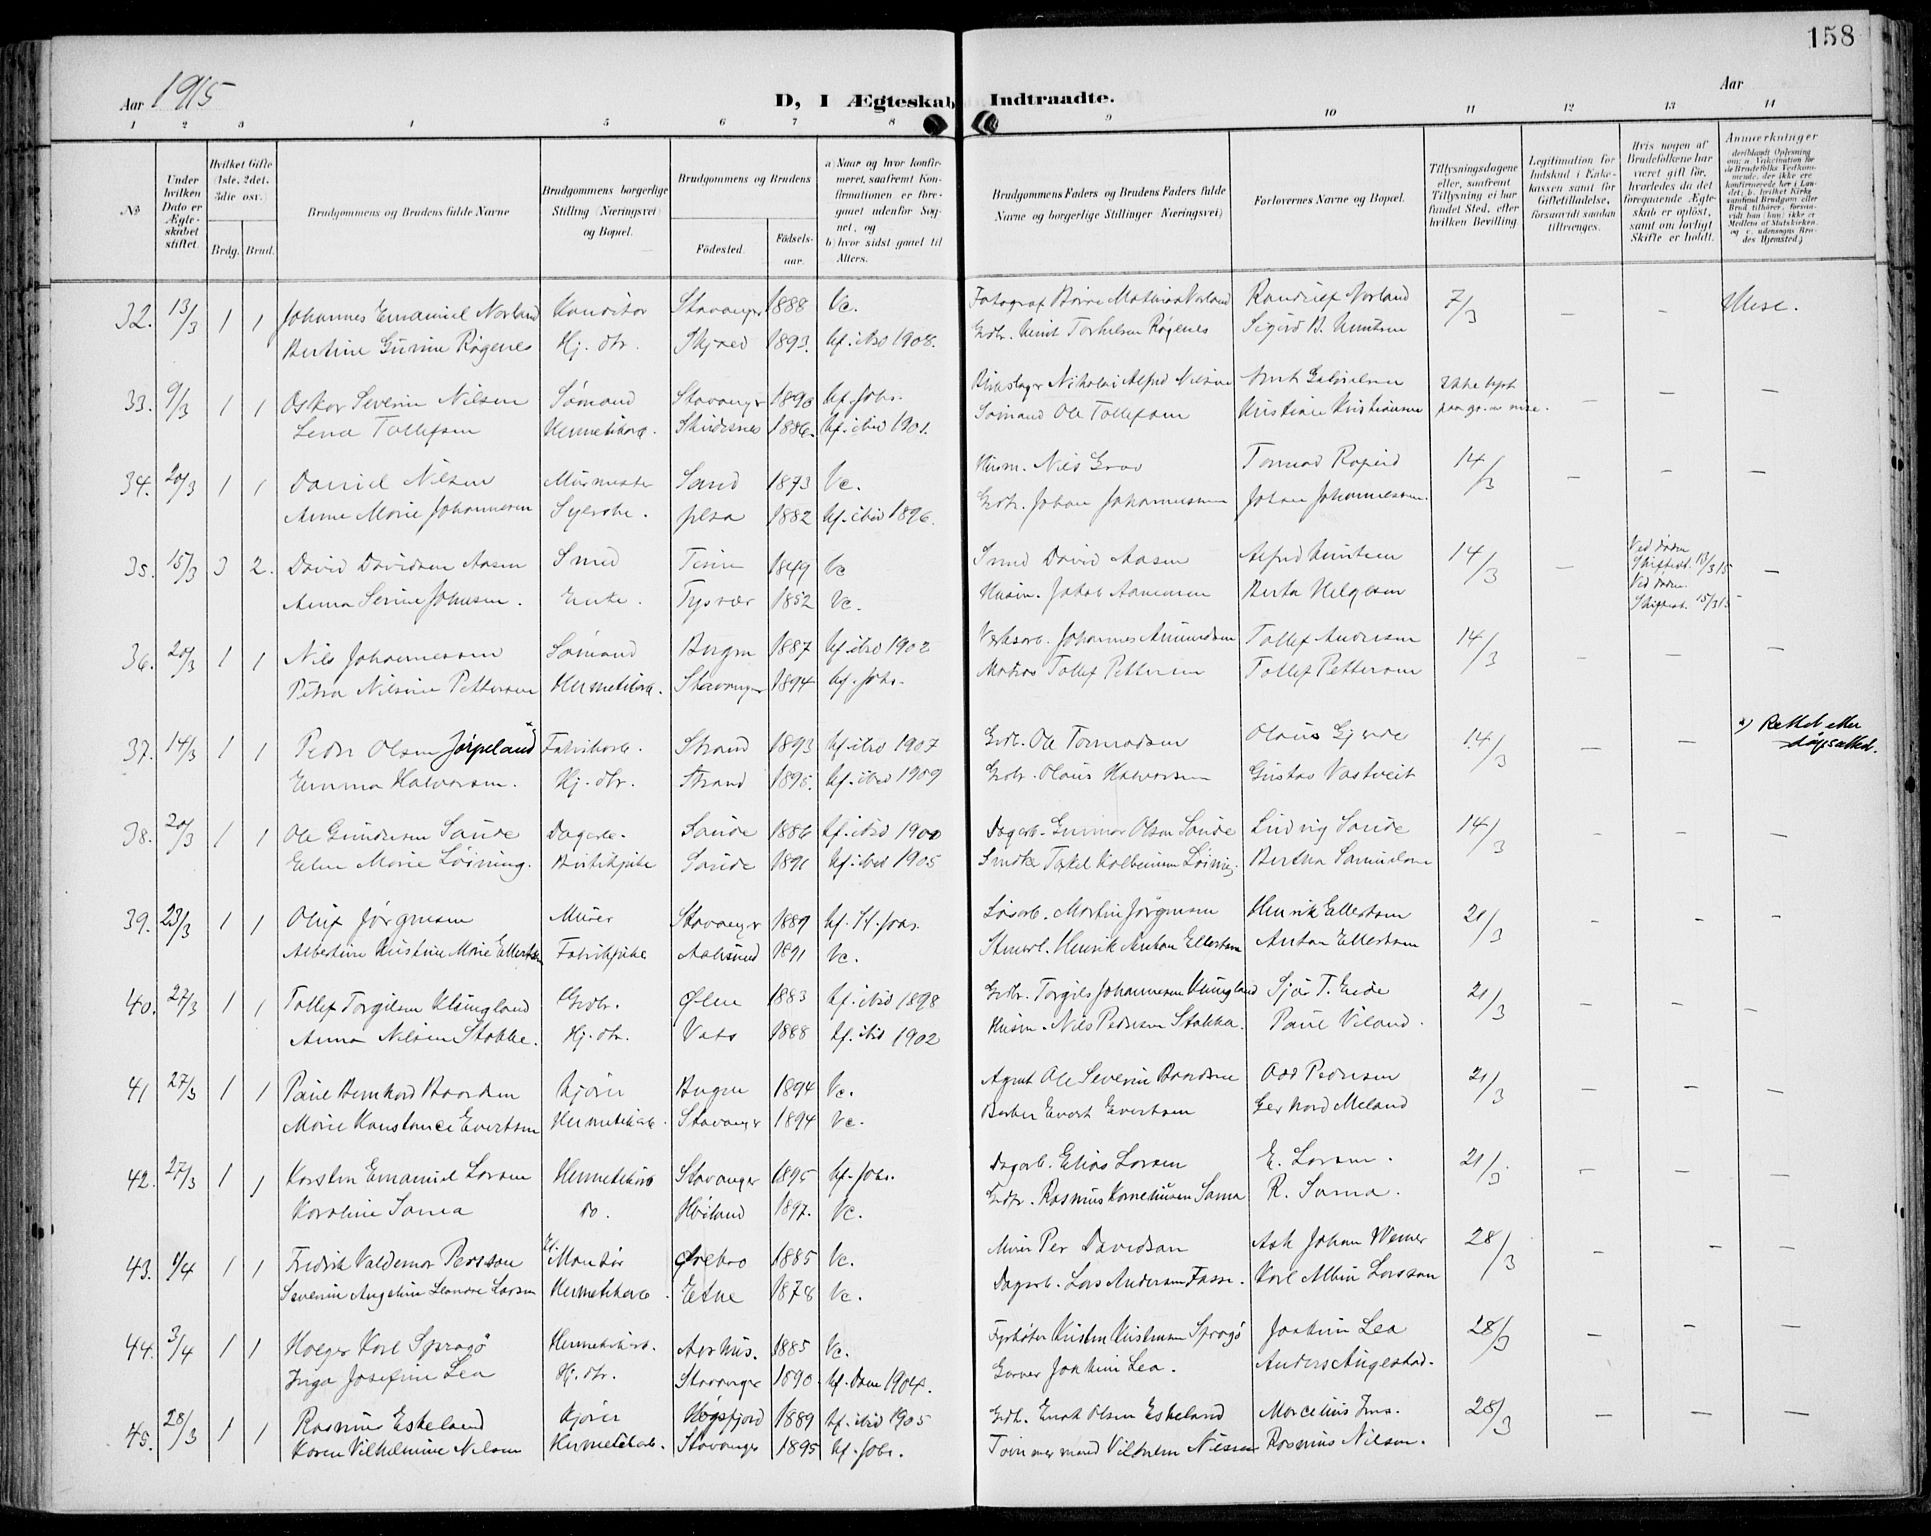 158
Aar 1915
D, I Ægteskab Indtraadte.
Aar
1 2 3 4 5 6 7 8 9 10 11 12 13 14
№
Under hvilken Dato er Ægteskabet stiftet.
Hvilket Gifte (1ste, 2det, 3die osv.
Brdg. Brud.
Brudgommens og Brudens fulde Navne
Brudgommens borgerlige Stilling (Næringsvei) og Bopæl.
Brudgommens og Brudens
Fødested.
Fødselsaar.
a) Naar og hvor konfirmeret, saafremt Konfirmationen er foregaaet udenfor Sognet, og
b) hvor sidst gaaet til Alters.
Brudgommens Faders og Brudens Faders fulde Navne og borgerlige Stillinger (Næringsvei)
Forlovernes Navne og Bopæl.
Tillysningsdagene eller, saafremt Tillysning ei har fundet Sted, efter hvilken Bevilling
Legitimation for Indskud i Enkekassen samt for Giftetilladelse, forsaavidt saadan tiltrænges.
Hvis nogen af Brudefolkene har været gift før, hvorledes da det foregaaende Ægteskab er opløst, samt om lovligt Skifte er holdt.
Anmerkninger
32. 13/3 1 1 Johannes Emanuel Norland Konditor Stavanger 1888 Vc. Fotograf Børre Mathias Norland Randulf Norland 7/3 – –
Bertine Gurine Røgenes Hj. dtr. Skjold 1893. kf. ibid 1908. Grdbr. Knut Torkelsen Røgenes Sigurd B. Knutsen
33. 9/3 1 1 Oskar Severin Nilsen Sømand Stavanger 1890 kf. Johs. Blikslager Nikolai Alfred Nilsen Gabrielsen Ikke lyst – – –
Lena Tollefsen Hermetikarb. Skudesnes 1886. kf. ibid 1901. Sømand Ole Tollefsen Kristiane Kristiansen
34. 20/3 1 1 Daniel Nilsen Murmester Sand 1873 Vc. Husm. Nils Grov Tormod Roperd 14/3 – – –
Anne Marie Johannesen Syerske. Jelsa 1882 kf. ibid 1896. Grdbr. Johan Johannessen Johan Johannessen.
35. 15/3 3 2. David Davidsen Aasen Smed Time 1849 Vc Smed David Aasen Alfred Knutsen 14/3 – Ved døden Skifteat. 13/3 15 –
Anna Serine Johnsen. Enke. Tysvær 1852 Vc. Husm. Jakob Aamensen Berta Helgesen Ved døden. Skifteat. 15/3 15
36. 20/3 1 1 Nils Johannessen Sømand Bergen 1887 kf. ibid 1902 Verksarb. Johannes Amundsen Tollef Andersen 14/3 – – –
Petra Nilsine Pettersen Hermetikarb. Stavanger 1894 kf. Johs. Matros Tollef Pettersen Tollef Pettersen
37. 14/3 1 1 Peder Olsen Jørpeland* Fabrikarb. Strand 1893 kf. ibid 1907 Grdb. Ole Tormodsen Olaus Gjerde 14/3 – – *) Rettet etter dåpsattest.
Emma Halvorsen. Hj. dtr. Strand 1895. kf. ibid 1909 Grdbr. Olaus Halvorsen Gustav Vastveit
38. 20/3 1 1 Ole Gundersen Saude Dagarb. Saude 1886 kf. ibid 1900 Dagarb. Gunnar Olsen Saude Ludvig Saude 14/3 – – –
Elen Marie Løining. Butikpike Saude 1891 kf. ibid 1905 Kolbeinsen Løining Bertha Samuelsen
39. 23/3 1 1 Oluf Jørgensen Murer Stavanger 1889 kf. St. Johs. Løsarb. Martin Jørgensen Henrik Ellertsen 21/3 – – –
Albertine Kristine Marie Ellertsen Fabrikpike Aalesund 1891 Vc. Henrik Anton Ellertsen Anton Ellertsen
40. 27/3 1 1 Tollef Torgilsen Klungland Grdbr. Ølen 1883 kf. ibid 1898 Grdbr. Torgils Johannesen Klungland Sjur T. Eide 21/3 – – –
Anna Nilsen Stakke. Hj. dtr. Vats 1888 kf. ibid 1902 Husm. Nils Pedersen Stakka. Paul Viland.
41 27/3 1 1 Paul Bernhard Baardsen Kjører Bergen 1894 Vc. Agent Ole Severin Baardsen Odd Pedersen 21/3 – – –
Marie Konstance Evertsen Hermetikarb. Stavanger 1894 Vc. Barber Evert Evertsen Gerhard Meland
42. 27/3 1 1 Karsten Emanuel Larsen Hermetikarb Stavanger 1895 kf. Johs. Dagarb. Elias Larsen E. Larsen. 21/3. – – –
Karoline Soma do. Høiland 1897. Vc. Grdbr. Rasmus Korneliusen Soma R. Soma.
43. 5/4 1 1 Fredrik Valdemar Persson El. Montør Ørebro 1885 Vc. Murer Per Davidsson Johan Werner 28/3 – – –
Severin Angeline Leandre Larsen Hermetikarb. Etne 1878 Vc. Dagarb. Lars Andersen Fosse. Karl Albin Larsson
44. 3/4 1 1 Holger Karl Sprogø Hermetikarb. Aarhus. 1885 Vc. Fyrbøter Kristen Kristensen Sprogø Joakim Lea 28/3 – – –
Inga Josefine Lea Hj. dtr. Stavanger 1890. kf. Dom 1904. Garver Joakim Lea. Anders Augestad.
45. 28/3 1 1 Rasmus Eskeland Kjører Høgsfjord 1889 kf. ibid 1905 Grdb. Enok Olsen Eskeland Marcelius Ims. 28/3 – – –
Karen Vilhelmine Nilsen Hermetikarb. Stavanger 1895 kf. Johs. Tømmermand Vilhelm Nilssen Rasmus Nilsen.